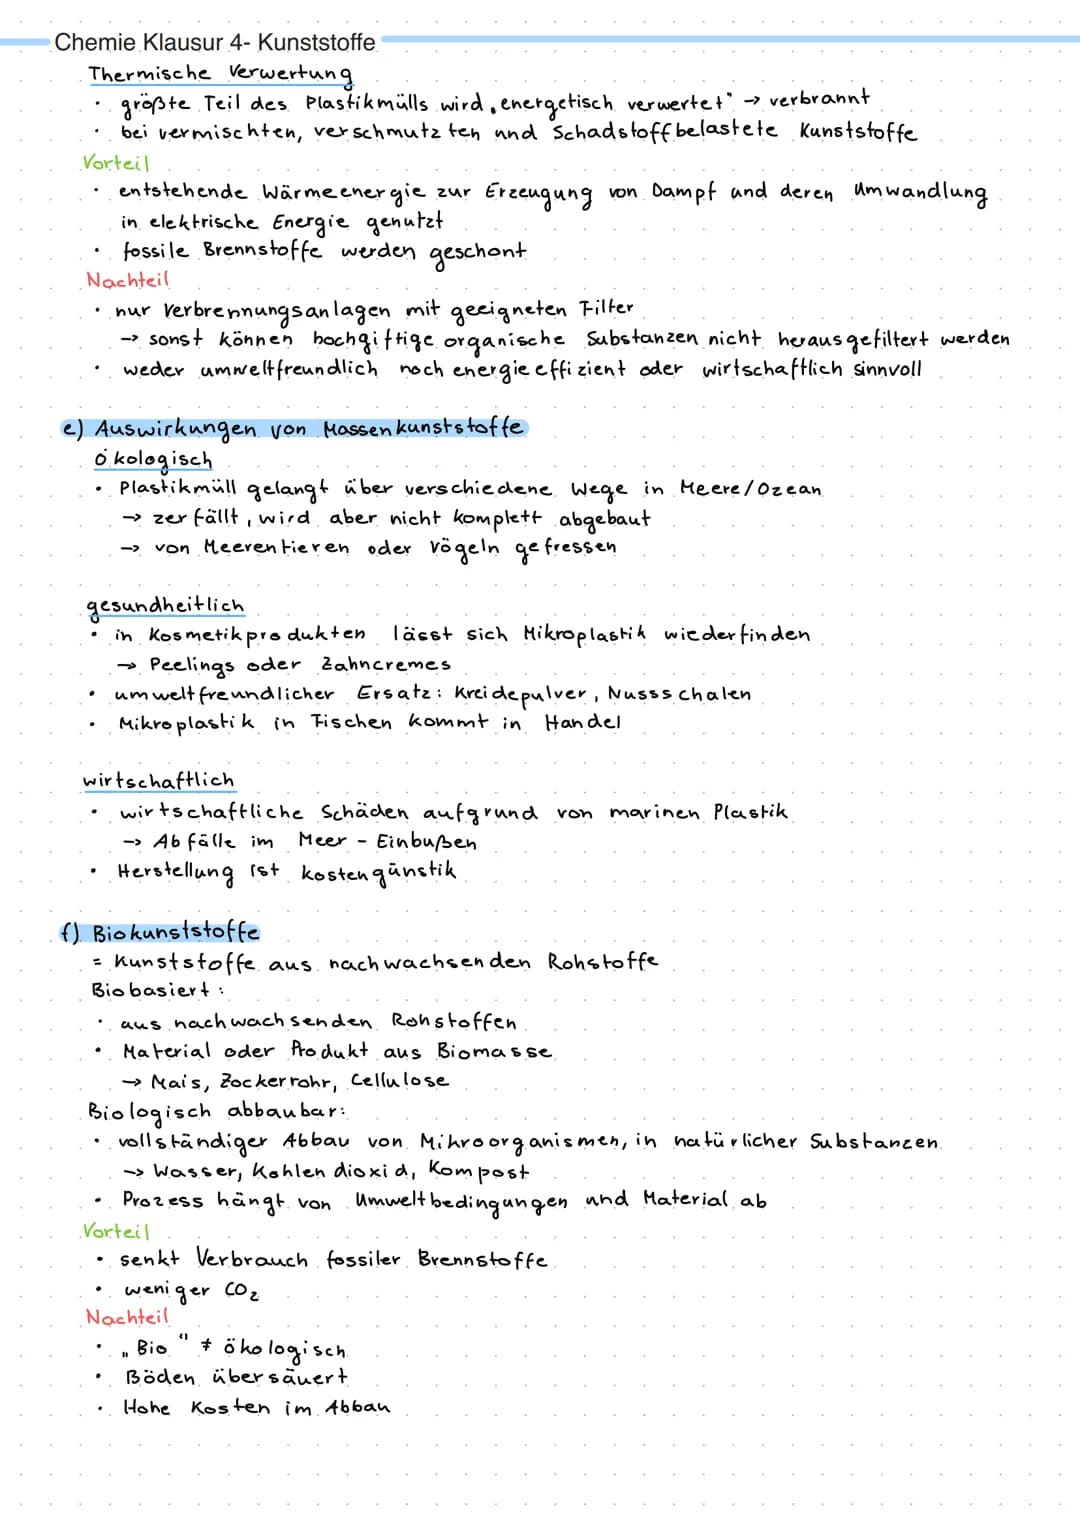 Chemie Klausur 4- Kunststoffe
Thermische Verwertung
• größte Teil des Plastikmülls wird „energetisch verwertet" → verbrannt
• bei vermischten, verschmutzten und Schadstoffbelastete Kunststoffe
Vorteil
• entstehende Wärmeenergie zur Erzeugung von Dampf und deren Umwandlung
in elektrische Energie genutzt
• fossile Brennstoffe werden geschont
Nachteil
• nur Verbrennungsanlagen mit geeigneten Filter
→ sonst können hochgiftige organische Substanzen nicht herausgefiltert werden
• weder umweltfreundlich noch energieeffizient oder wirtschaftlich sinnvoll
e) Auswirkungen von Massenkunststoffe
ökologisch
• Plastikmüll gelangt über verschiedene Wege in Meere/Ozean
→ zerfällt, wird aber nicht komplett abgebaut
→ von Meerentieren oder Vögeln gefressen
gesundheitlich
• in Kosmetikprodukten lässt sich Mikroplastik wiederfinden
→ Peelings oder Zahncremes
• umweltfreundlicher Ersatz: Kreidepulver, Nussschalen
• Mikroplastik in Fischen kommt in Handel
wirtschaftlich
• wirtschaftliche Schäden aufgrund von marinen Plastik
→ Abfälle im Meer - Einbußen
• Herstellung ist kostengünstik
f) Biokunststoffe
= Kunststoffe aus nachwachsenden Rohstoffe
Biobasiert:
• aus nachwachsenden Rohstoffen
• Material oder Produkt aus Biomasse
→ Mais, Zockerrohr, Cellulose
Biologisch abbaubar:
• vollständiger Abbau von Mikroorganismen, in natürlicher Substanzen
→ Wasser, Kohlendioxid, Kompost
• Prozess hängt von Umweltbedingungen und Material ab
Vorteil
• senkt Verbrauch fossiler Brennstoffe
• weniger CO₂
Nachteil
• „Bio" ≠ ökologisch
• Böden übersäuert
• Hohe Kosten im Abbau